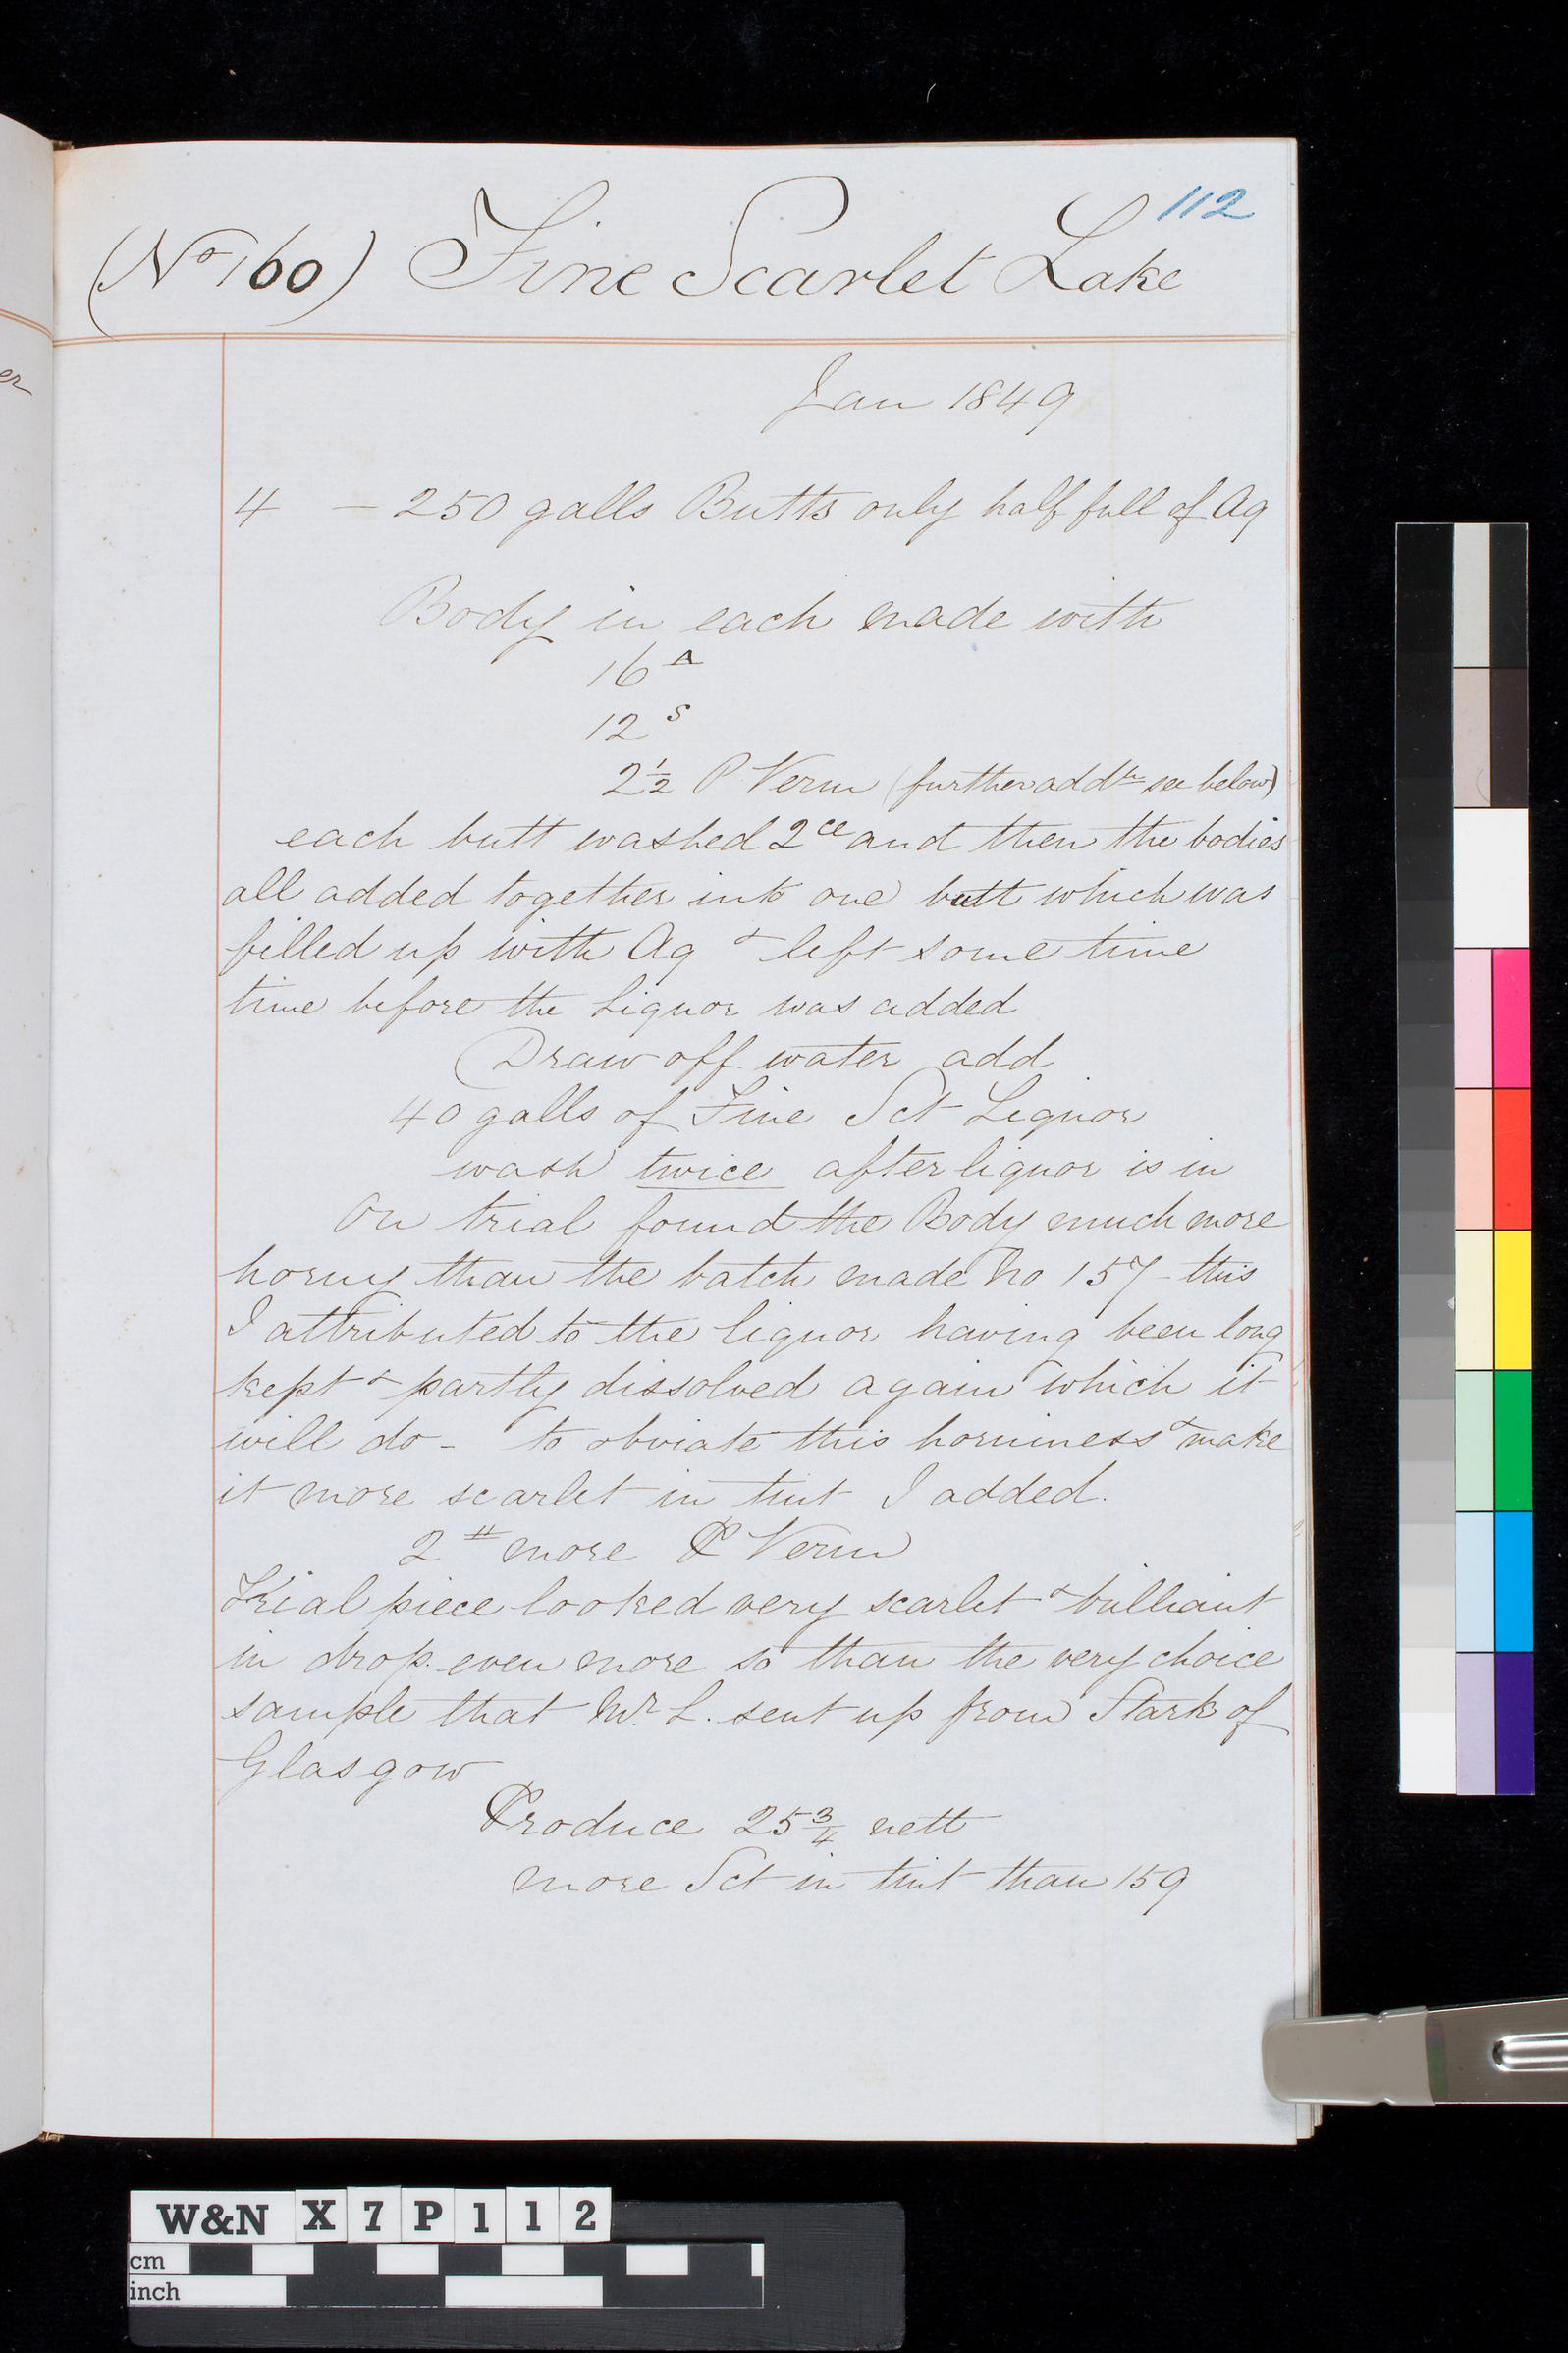 112
(No 160) Fine Scarlet Lake
er
Jan 1849
4 – 250 galls Butts only half full of Aq
Body in each made with
16 A
12 S
2½ P Verm (further addtn see below)
each butt washed 2ce and then the bodies
all added together into one butt which was
filled up with Aq & left some time
time before the Liquor was added
Draw off water add
40 galls of Fine Sct Liquor
wash twice after liquor is in
On trial found the Body much more
horny than the batch made No 157 – this
I attributed to the liquor having been long
kept & partly dissolved again which it
will do – to obviate this horniness & make
it more scarlet in tint I added.
2 # more P Verm
Trial piece looked very scarlet & brilliant
in drop. even more so than the very choice
sample that Mr. L. sent up from Stark of
Glasgow
Produce 25¾ nett
more Sct in tint than 159
W&N X 7 P 1 1 2
cm
inch